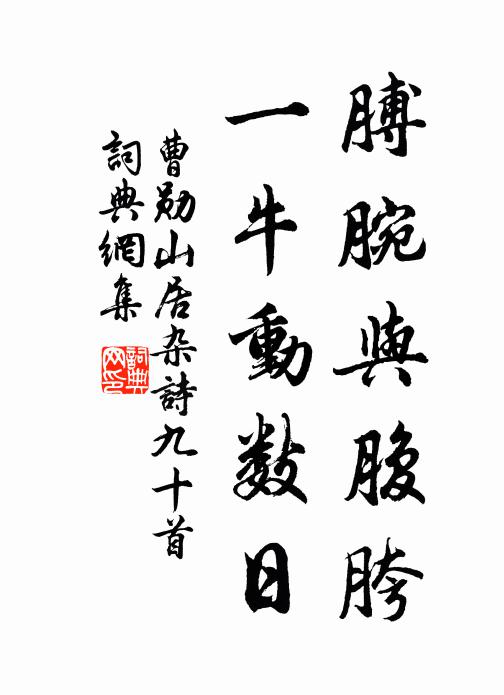 膊腕與腹胯
一牛動数日
曹勋山居杂詩九十首
詞典網集
詞典
网印